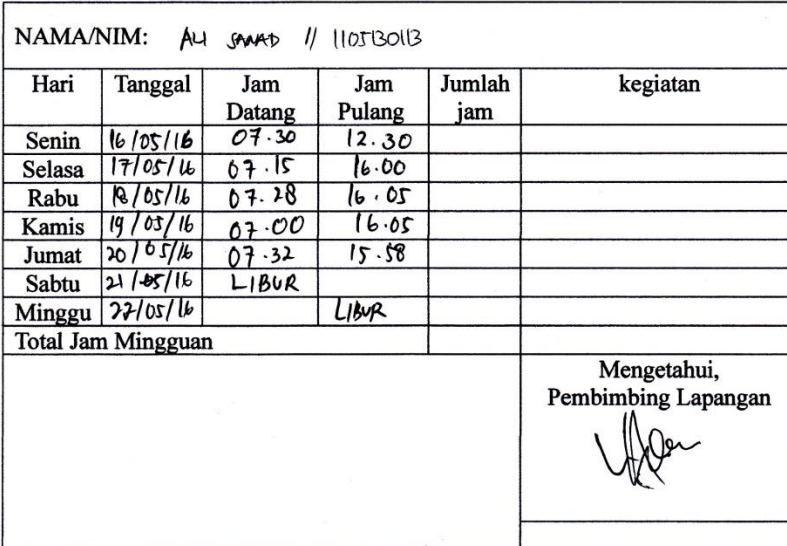 NAMA/NIM: ALI SANAD // 1105130113
Hari Tanggal Jam Datang Jam Pulang Jumlah jam kegiatan
Senin 16/05/16 07.30 12.30
Selasa 17/05/16 07.15 16.00
Rabu 18/05/16 07.28 16.05
Kamis 19/05/16 07.00 16.05
Jumat 20/05/16 07.32 15.58
Sabtu 21/05/16 LIBUR
Minggu 22/05/16 LIBUR
Total Jam Mingguan
Mengetahui,
Pembimbing Lapangan